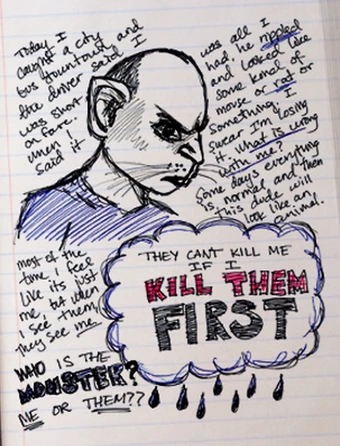 Today I
caught a city
bus downtown and
the driver said I
was short
on fare.
When I
said it
was all I
had, he nibbled
and looked like
some kind of
mouse or rat or
something. I
swear I'm losing
it. What is wrong
with me?
Some days everything
is normal and then
this dude will
look like an
animal.
most of the
time, I feel
like its just
me, but when
I see them,
they see me.
WHO IS THE
MONSTER?
ME OR THEM??
THEY CANT KILL ME
IF I
KILL THEM
FIRST